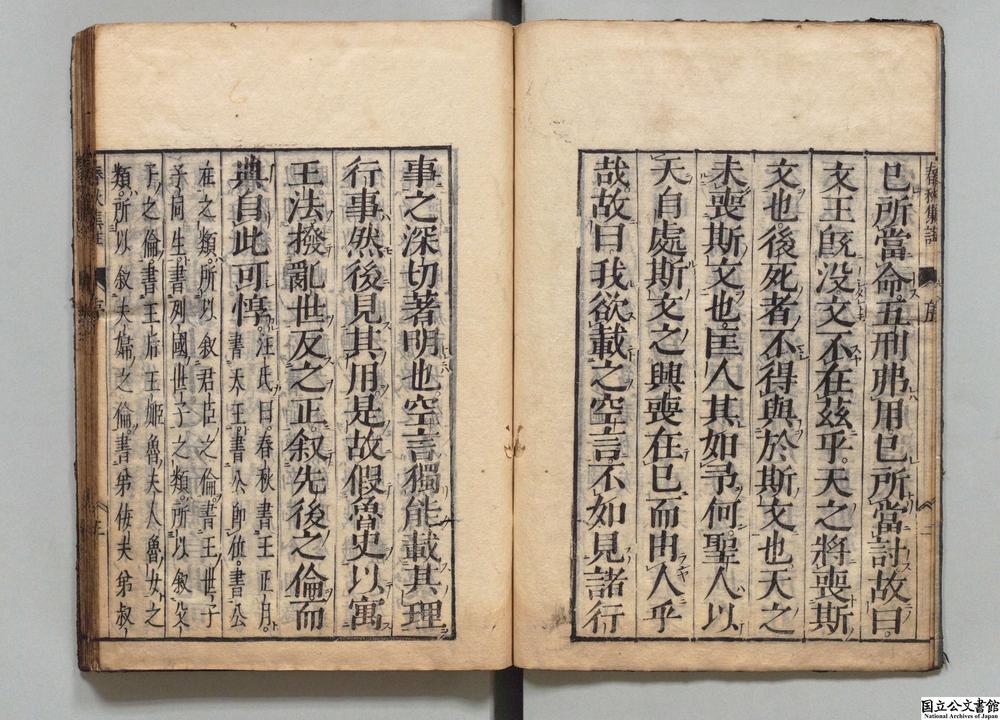 春秋集註 序 二
已所當命。五刑弗用已所當討故曰。
文王旣没文不在茲乎。天之將喪斯
文也。後死者不得與於斯文也天之
未喪斯文也。匡人其如予何聖人以
天自處斯文之興喪在已而由人乎
哉故曰我欲載之空言不如見諸行
事之深切著明也。空言獨能載其理
行事然後見其用是故假魯史以寓
王法撥亂世反之正。叙先後之倫而
典自此可惇。汪氏曰。春秋書王正月。
書天王。書公即位。書公
在之類。所以叙君臣之倫。書王世子
子同生。書列國世子之類。所以叙父
子之倫。書王后王姬魯夫人魯女之
類。所以叙夫婦之倫。書弟佞夫弟叔
春秋集註 序
国立公文書館
National Archives of Japan